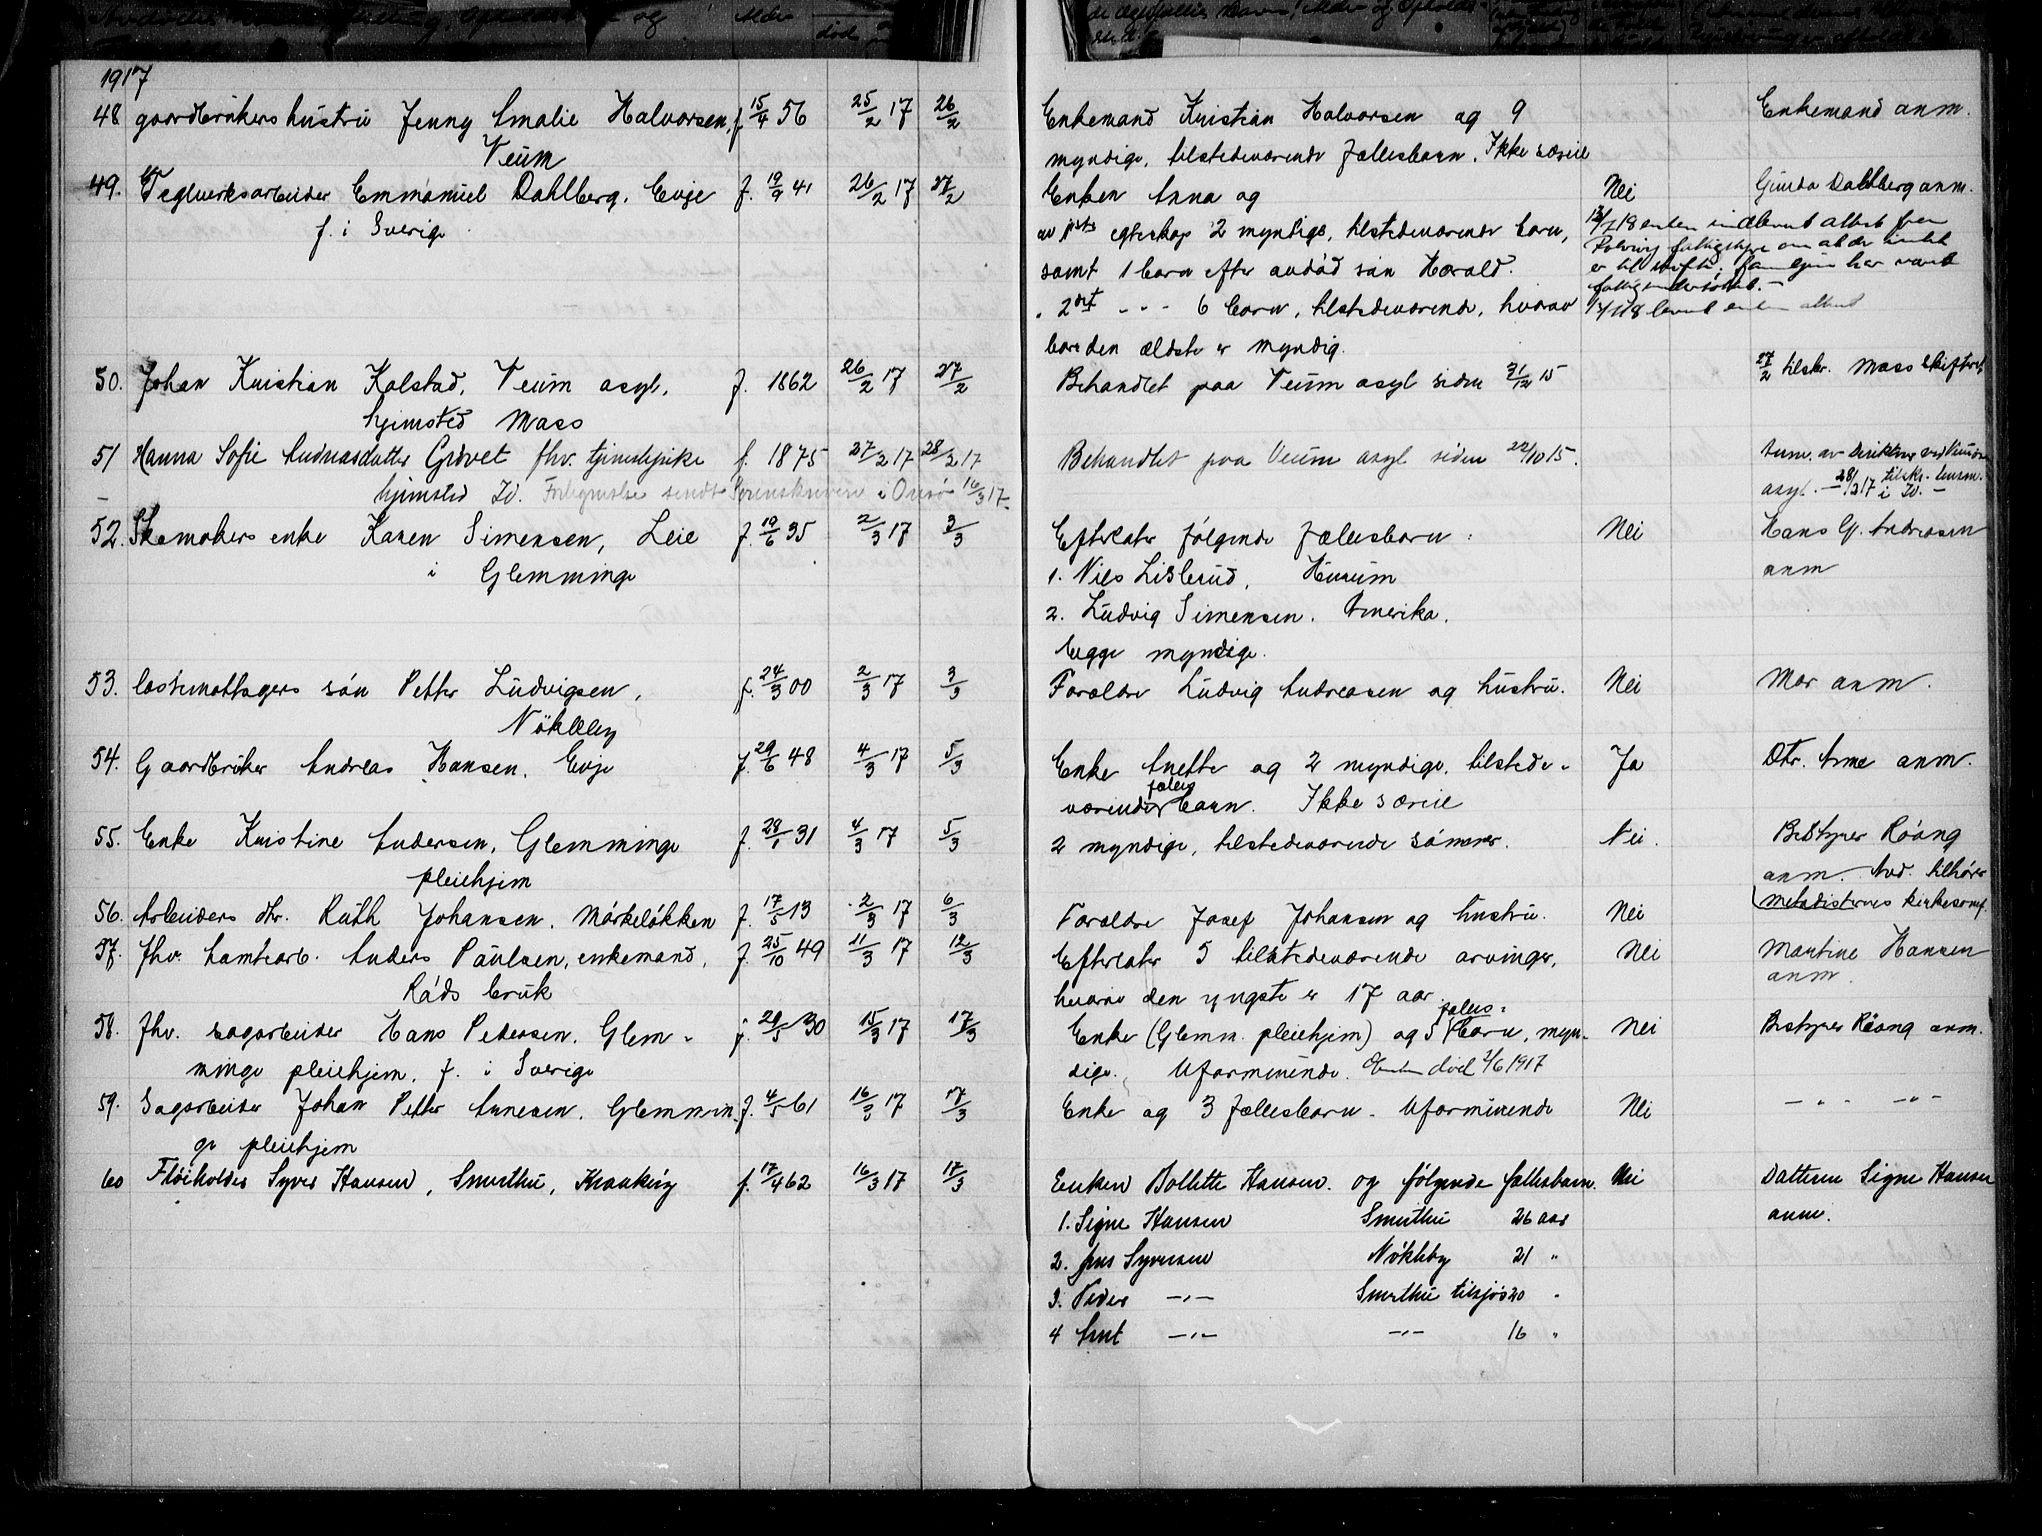 1917
48 gaardbrukers hustru Jenny Amalie Halvorsen, f. 15/4 56 25/2 17 26/2 Enkemand Kristian Halvorsen og 9 Enkemand anm.
Veum myndige, tilstedeværende fællesbarn. Ikke særeie
49. Teglverksarbeider Emmanuel Dahlberg, Evje f. 19/9 41 26/2 17 27/2 Enken Anna og Nei Gunda Dahlberg anm.
f. i Sverige av 1ste egteskap 2 myndige, tilstedeværende barn,
samt 1 barn efter avdød søn Harald.
" 2det - - - 6 barn, tilstedeværende, hvorav
bare den ældste er myndig.
50. Johan Kristian Kolstad, Veum asyl, f. 1862 26/2 17 27/2 Behandlet paa Veum asyl siden 31/12 15 27/2 tilskr. Moss skifteret
hjemsted Moss
51 Hanna Sofie Andreasdatter Grøvet fhv. tjenestepike f. 1875 27/2 17 28/2 17 Behandlet paa Veum asyl siden 22/10 15. Anm. av direktøren ved Veum
hjemsted Id. sendt Sorenskriveren i Onsø 16/3 17. asyl. - 28/2 17 tilskr. lensm. i Id. -
52. Skomakers enke Karen Simensen, Leie f. 19/6 35 2/3 17 3/3 Efterlater følgende fællesbarn: Nei Hans G. Andreasen
i Glemminge 1. Nils Lislerud, Hurum anm
2. Ludvig Simensen. Amerika.
begge myndige.
53. lossemottagers søn Petter Ludvigsen, f. 24/3 00 2/3 17 3/3 Forældre Ludvig Andreasen og hustru. Nei Mor anm.
Nøkleby
54. Gaardbruker Andreas Hansen, Evje f. 29/6 48 4/3 17 5/3 Enke Anette og 2 myndige, tilstede- Ja Dtr. Anne anm.
værende fælles barn. Ikke særeie
55. Enke Kristine Andersen, Glemminge f. 28/1 31 4/3 17 5/3 2 myndige, tilstedeværende sønner. Nei. Bestyrer Roang
pleiehjem anm. Avd. tilhører
56. Arbeiders dtr. Ruth Johansen, Mørkeløkken f. 17/5 13 2/3 17 6/3 Forældre Josef Johansen og hustru. Nei metodisternes kirkesamf.
57. fhv. tomtearb. Anders Paulsen, enkemand, f. 25/10 49 11/3 17 12/3 Efterlater 5 tilstedeværende arvinger, Nei Martine Hansen
Råds bruk hvorav den yngste er 17 aar anm.
58. fhv. sagarbeider Hans Petersen, Glem- f. 29/5 30 15/3 17 17/3 Enke (Glemm. pleiehjem) og 5 fælles- barn, myn- Nei Bestyrer Roang anm.
minge pleiehjem, f. i Sverige dige. Uformuende. Enken død 2/6 1917
59. Sagarbeider Johan Petter Arnesen, Glemmin- f. 4/5 61 16/3 17 17/3 Enke og 3 fællesbarn. Uformuende Nei - " - - " -
ge pleiehjem
60 Fløiholder Syver Hansen, Smertu, Kraakerøy f. 17/4 62 16/3 17 17/3 Enken Bollette Hansen. og følgende fællesbarn. Nei Datteren Signe Hansen
1. Signe Hansen Smertu 26 aar anm.
2. Jens Syversen Nøkleby 21 "
3. Peder - " - Smertu tilsjøs 20 "
4 Arnt - " - - " - 16 "